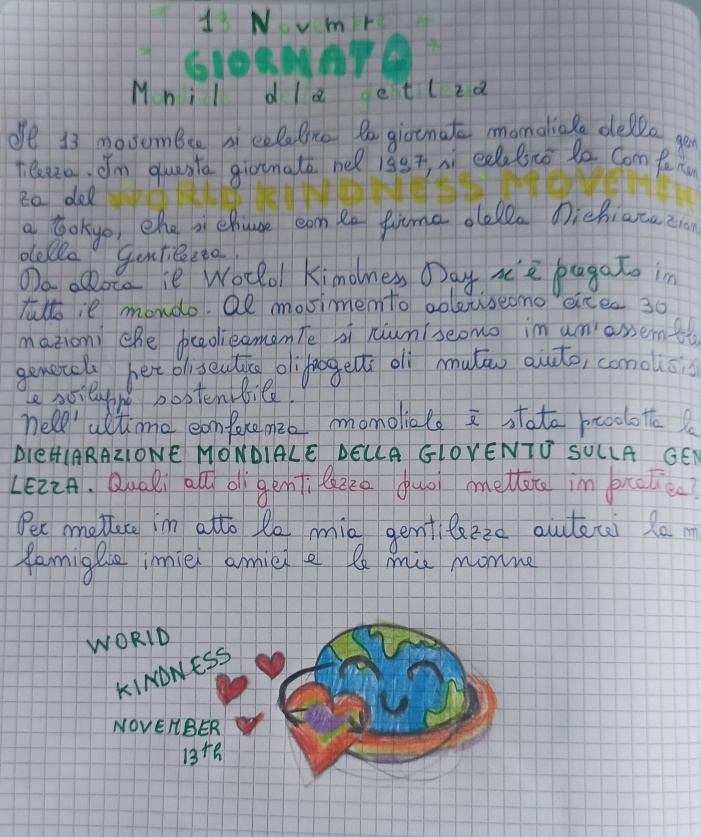 13 Novmr
GIORNATA
Monil della getilza
Il 13 novembre si celebra la giornata mondiale della gen
tilezza. In questa giornata nel 1997, si celebrò la Conferen
za del WORLD KINDNESS MOVEMEN
a Tokyo, che si chiuse con la firma della Dichiarazion
della Gentilezza.
Da allora il World Kindness Day si è pregato in
tutto il mondo. Al movimento aderiscono circa 30
nazioni che predicamente si riuniscono in un'assemble
generale per discutere di progetti di mutuo aiuto, condivisi
e sviluppo sostenibile.
Nell'ultima conferenza mondiale è stata prodotta la
DICHIARAZIONE MONDIALE DELLA GIOVENTÙ SULLA GEN
LEZZA. Quali atti di gentilezza puoi mettere in pratica?
Per mettere in atto la mia gentilezza aiuterei la m
famiglia i miei amici e le mie nonne
WORLD
KINDNESS
NOVEMBER
13th